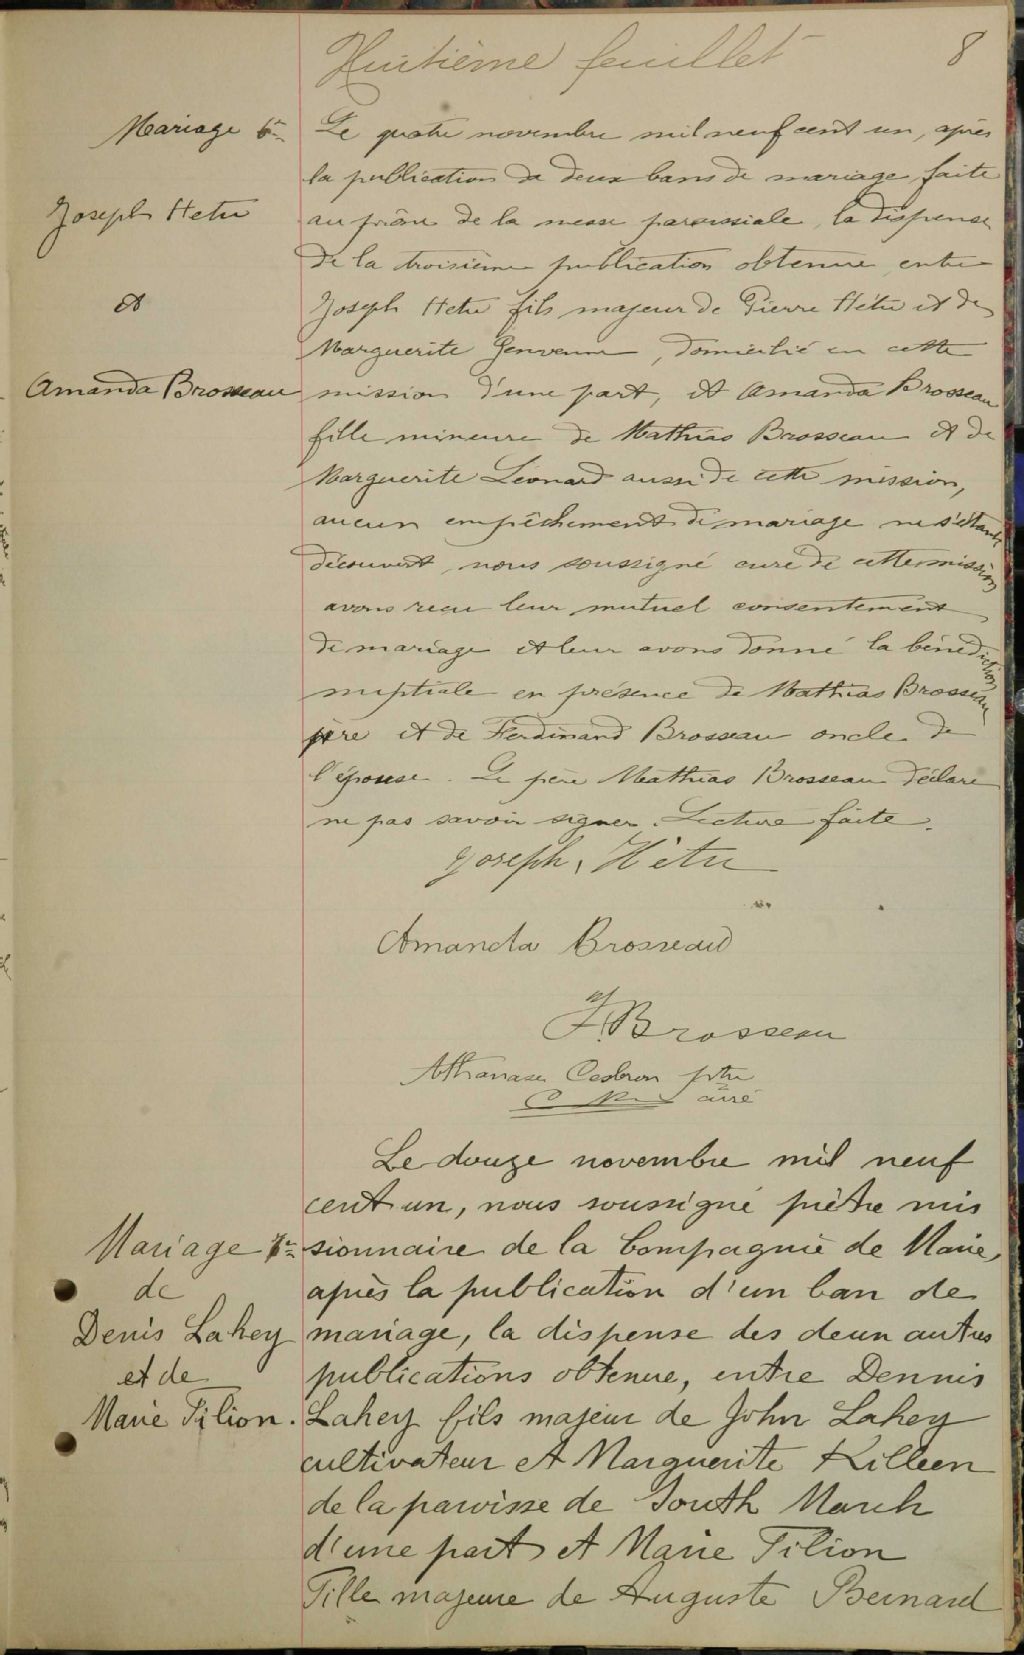 Huitième feuillet 8
Mariage 6e
Joseph Hetu
et
Amanda Brosseau
Le quatre novembre mil neuf cent un, après
la publication de deux bans de mariage faite
au prône de la messe paroissiale, la dispense
de la troisième publication obtenue entre
Joseph Hetu fils majeur de Pierre Hétu et de
Marguerite, domicilié en cette
mission d'une part, et Amanda Brosseau
fille mineure de Mathias Brosseau et de
Marguerite Léonard aussi de cette mission,
aucun empêchement de mariage ne s'étant
découvert, nous soussigné curé de cette mission
avons reçu leur mutuel consentement
de mariage et leur avons donné la bénédiction
nuptiale en présence de Mathias Brosseau
père et de Ferdinand Brosseau oncle de
l'épouse. Le père Mathias Brosseau déclare
ne pas savoir signer. Lecture faite.
Joseph Hétu
Amanda Brosseau
F. Brosseau
Athanase Cesbron ptre
curé
Mariage 7e
de
Denis Lahey
et de
Marie Filion.
Le douze novembre mil neuf
cent un, nous soussigné prètre mis
sionnaire de la Compagnie de Marie,
après la publication d'un ban de
mariage, la dispense des deux autres
publications obtenue, entre Dennis
Lahey fils majeur de John Lahey
cultivateur et Marguerite Killeen
de la paroisse de South March
d'une part et Marie Filion
Fille majeure de Auguste Bernard